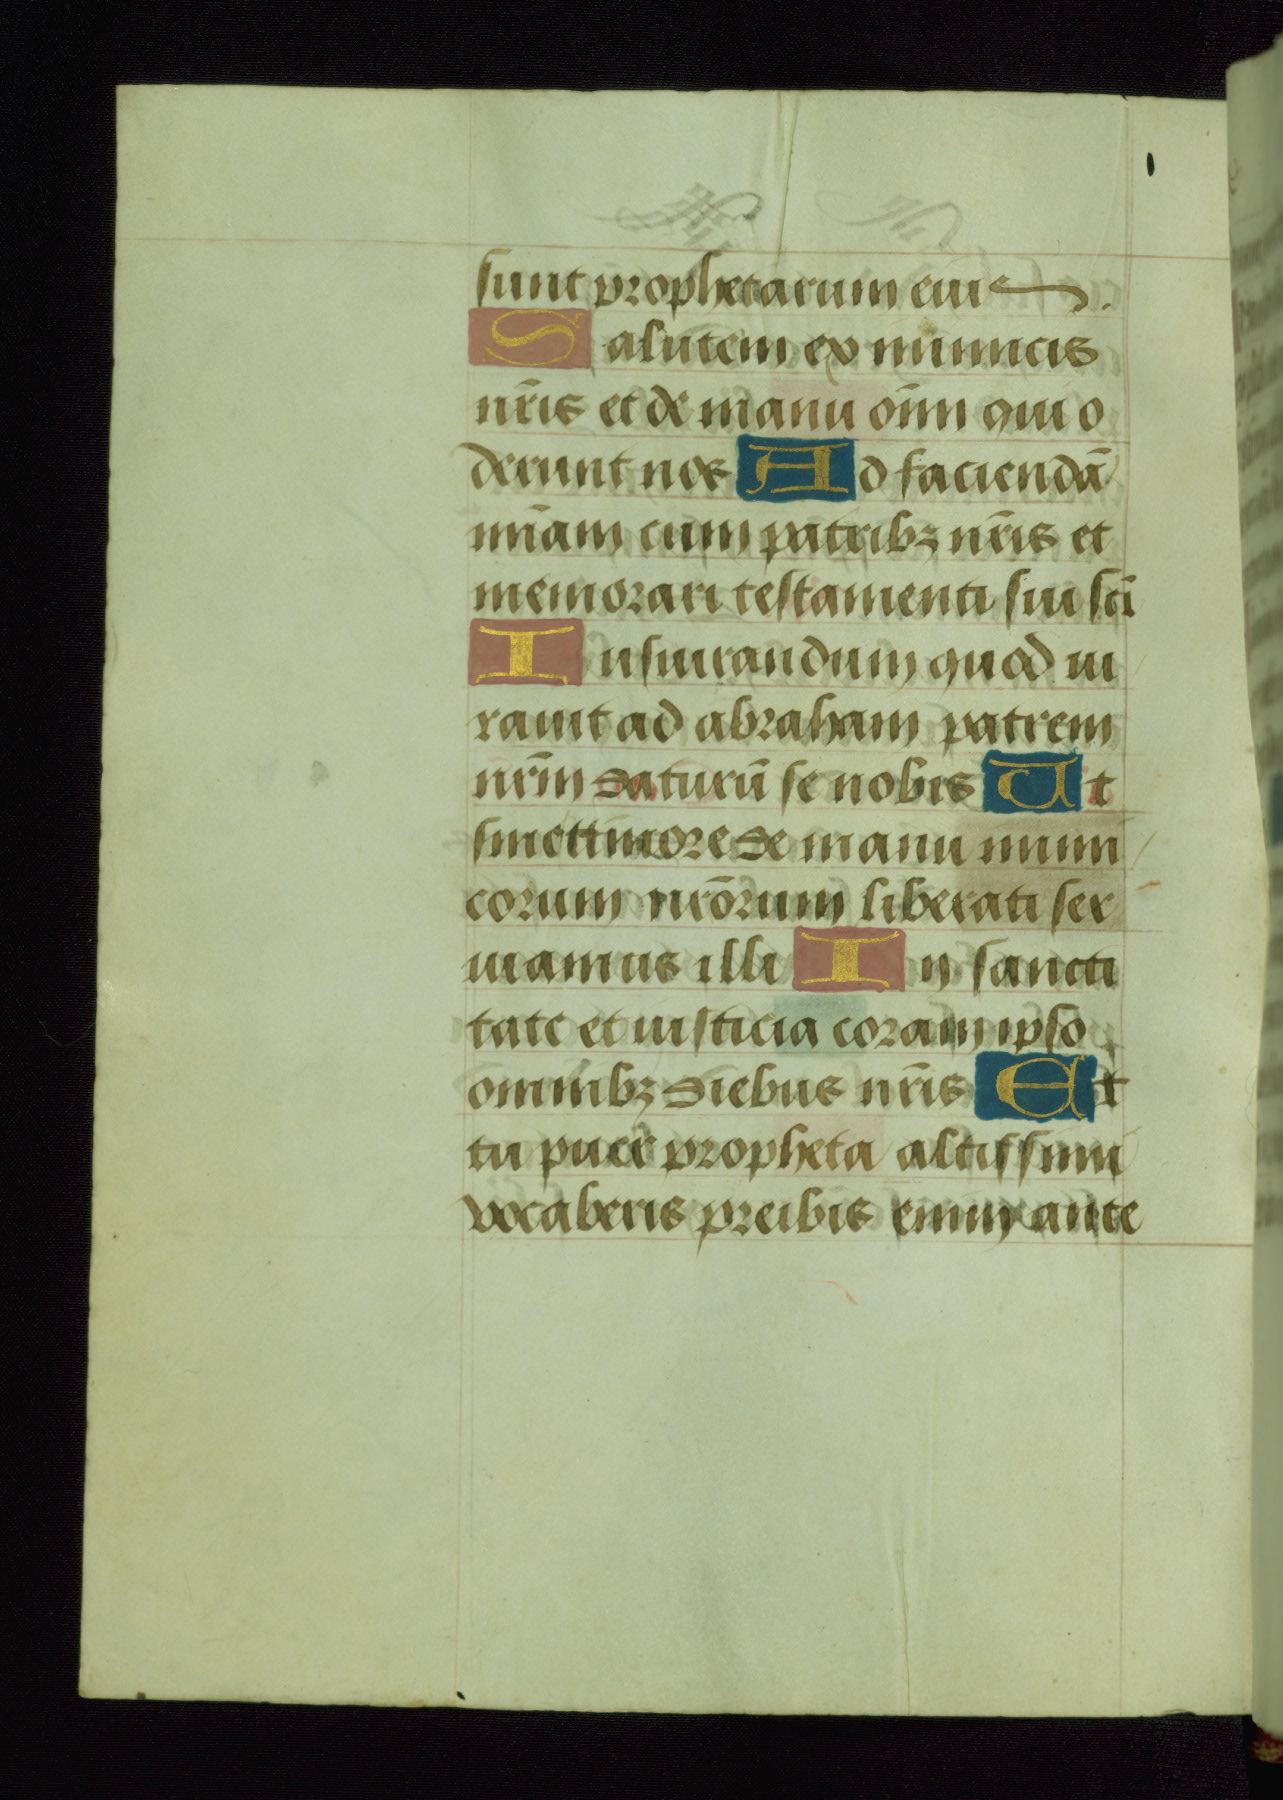 sunt prophetarum eius.
Salutem ex inimicis
nr̄is et de manu oīm qui o
derunt nos Ad faciendā
mīam cum patribꝫ nr̄is et
memorari testamenti sui sc̄i
Iusiurandum quod iu
rauit ad abraham patrem
nr̄m daturū se nobis Ut
sine timore de manu inimi
corum nr̄orum liberati ser
uiamus illi In sancti
tate et iusticia coram ipso
omnibꝫ diebus nr̄is Et
tu puer propheta altissimi
vocaberis preibis enim ante